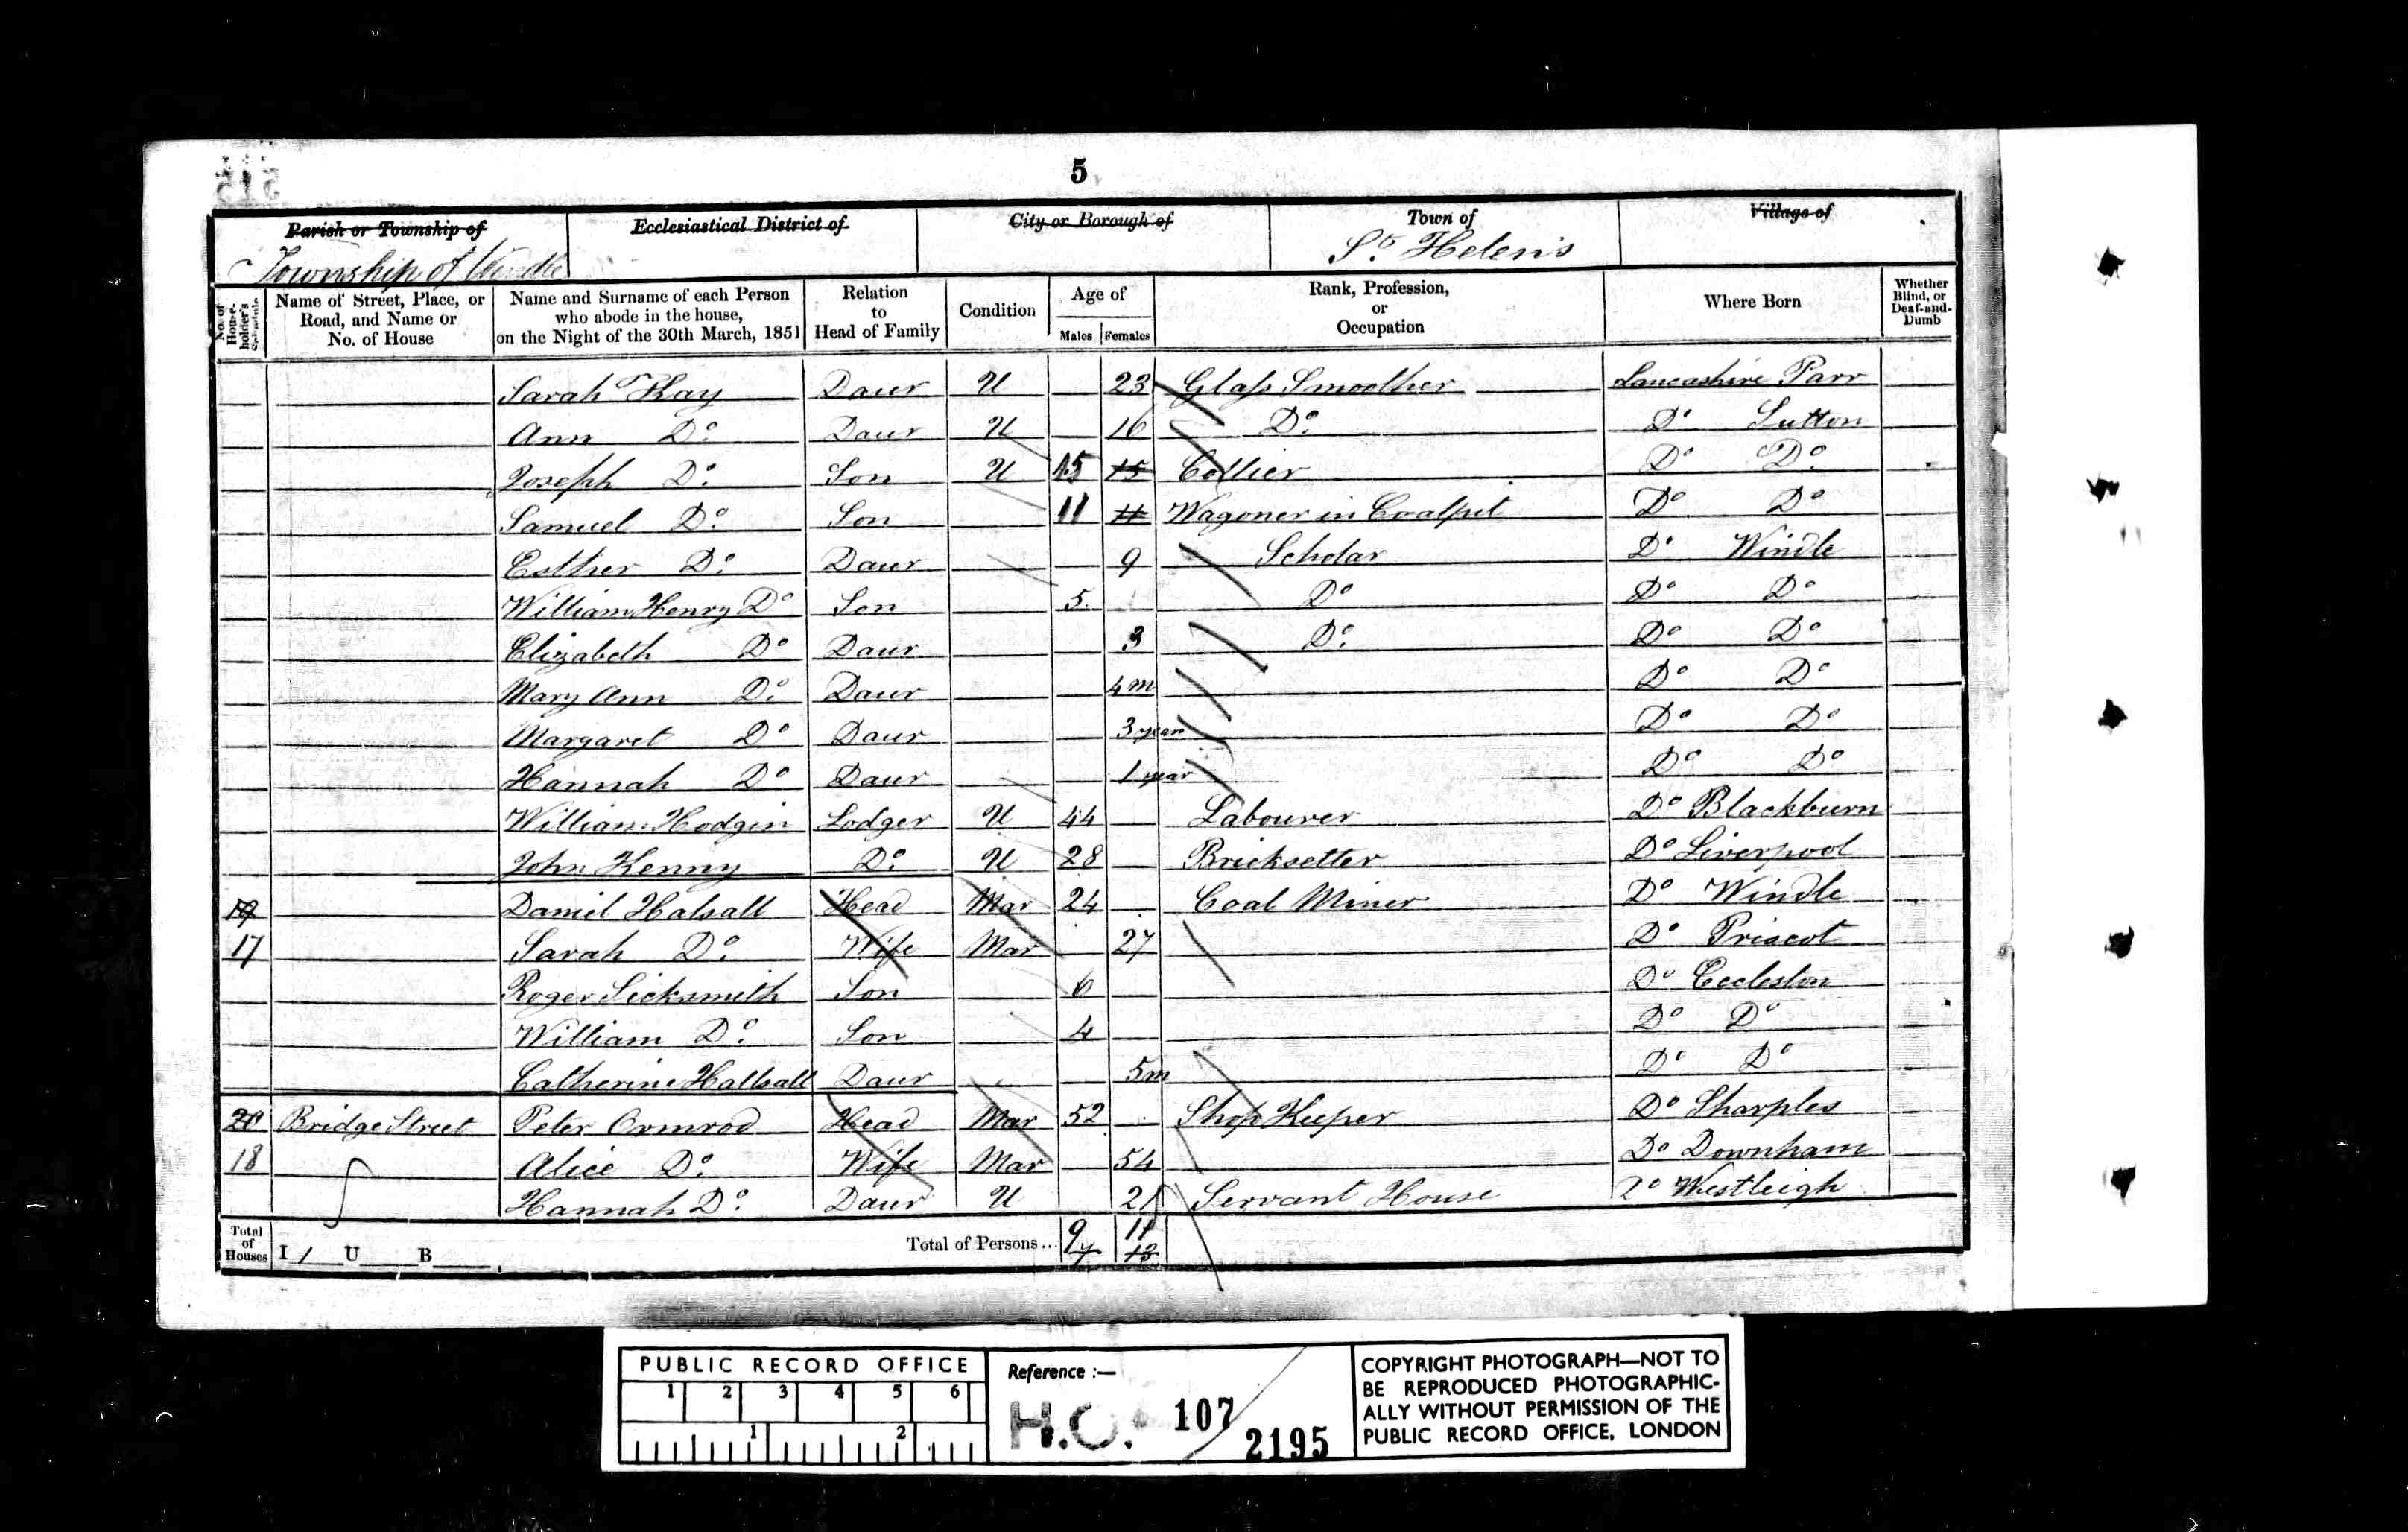 5
Parish or Township of Ecclesiastical District of City or Borough of Town of Village of
Township of Windle St. Helen's
No. of House-holder's Schedule Name of Street, Place, or Road, and Name or No. of House Name and Surname of each Person who abode in the house, on the Night of the 30th March, 1851 Relation to Head of Family Condition Age of Males Females Rank, Profession, or Occupation Where Born Whether Blind, or Deaf-and-Dumb
Sarah Kay Daur U 23 Glass Smoother Lancashire Parr
Ann Do. Daur U 16 Do. Do Sutton
Joseph Do. Son U 15 15 Collier Do Do.
Samuel Do. Son 11 11 Wagoner in Coalpit Do Do
Esther Do. Daur 9 Scholar Do Windle
William Henry Do Son 5 Do Do Do
Elizabeth Do Daur 3 Do. Do Do
Mary Ann Do. Daur 4m Do Do
Margaret Do Daur 3 year Do Do
Hannah Do Daur 1 year Do Do
William Hodgin Lodger U 44 Labourer Do Blackburn
John Kenny Do. U 28 Bricksetter Do Liverpool
19 Daniel Halsall Head Mar 24 Coal Miner Do Windle
17 Sarah Do. Wife Mar 27 Do Priscot
Roger Sicksmith Son 6 Do Eccleston
William Do. Son 4 Do Do
Catherine Hallsall Daur 5m Do Do
20 Bridge Street Peter Ormrod Head Mar 52 Shop Keeper Do Sharples
18 Alice Do. Wife Mar 54 Do Downham
Hannah Do. Daur U 21 Servant House Do Westleigh
Total of Houses I 1 U B Total of Persons... 9 11
7 13
PUBLIC RECORD OFFICE
1 2 3 4 5 6
1 2
Reference :—
H.O. 107/2195
COPYRIGHT PHOTOGRAPH—NOT TO
BE REPRODUCED PHOTOGRAPHIC-
ALLY WITHOUT PERMISSION OF THE
PUBLIC RECORD OFFICE, LONDON